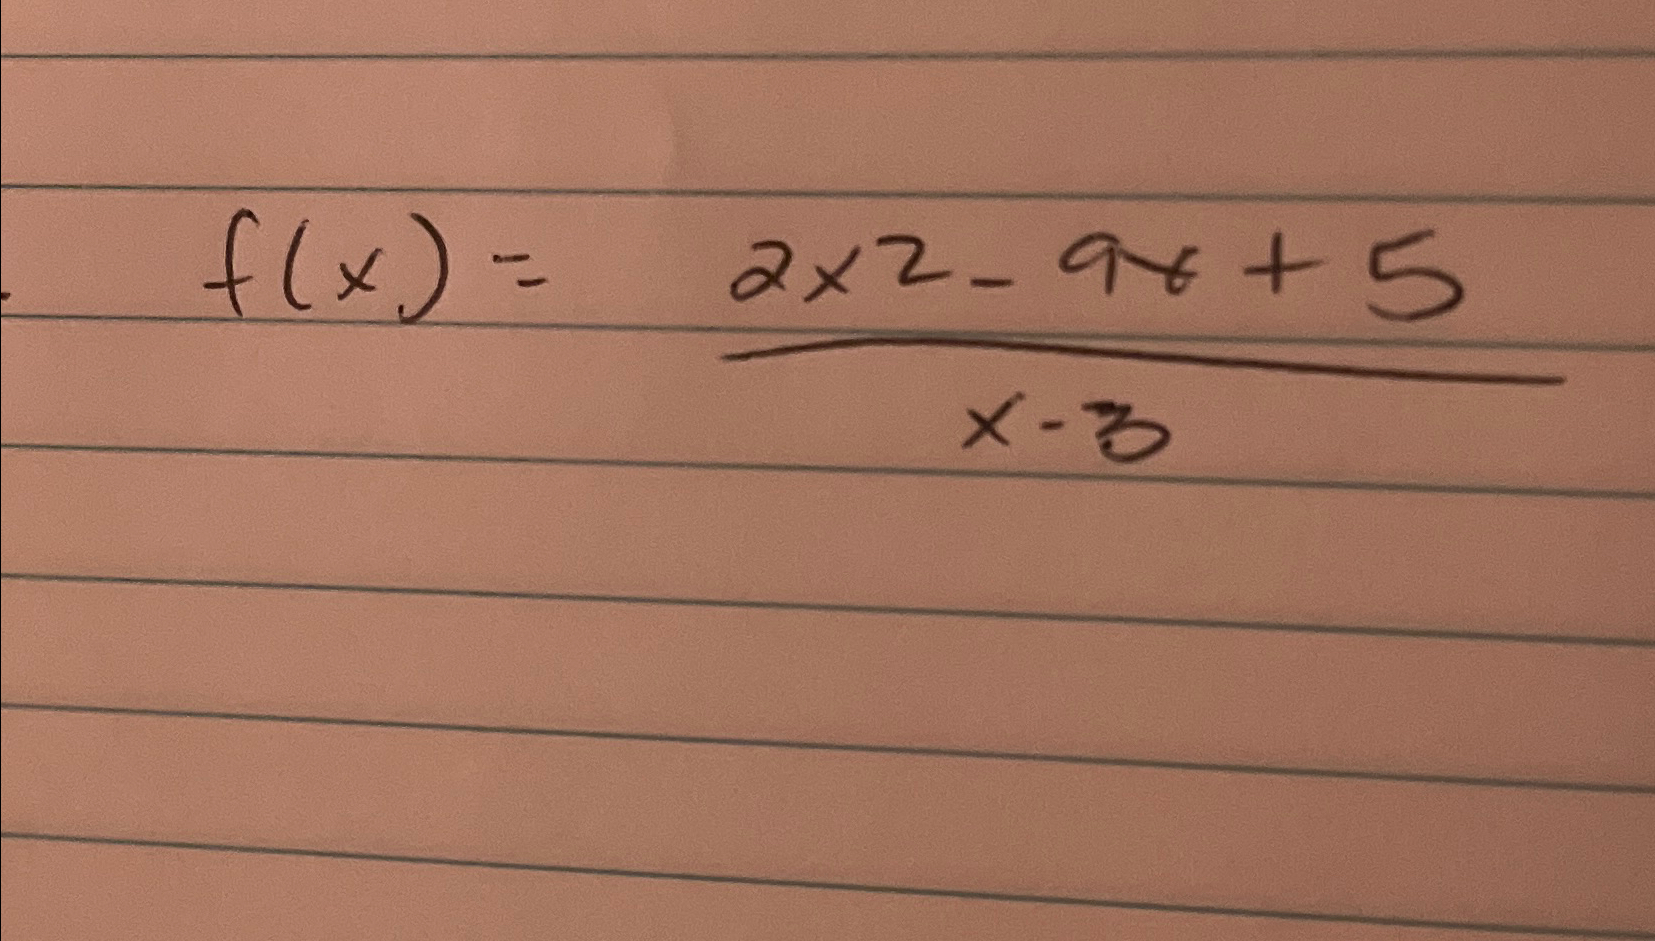 f(x) = 2x2 - 9x + 5
x - 3